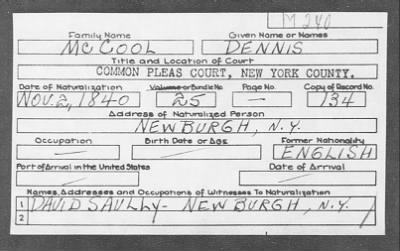 M 240
Family Name Given Name or Names
MCCOOL DENNIS
Title and Location of Court
COMMON PLEAS COURT, NEW YORK COUNTY.
Date of Naturalization Volume or Bundle No. Page No. Copy of Record No.
NOV. 2, 1840 25 — 134
Address of Naturalized Person
NEWBURGH, N.Y.
Occupation Birth Date or Age Former Nationality
— — ENGLISH
Port of Arrival in the United States Date of Arrival
— —
Names, Addresses and Occupations of Witnesses To Naturalization
1 DAVID SAULLY- NEWBURGH, N.Y.
2